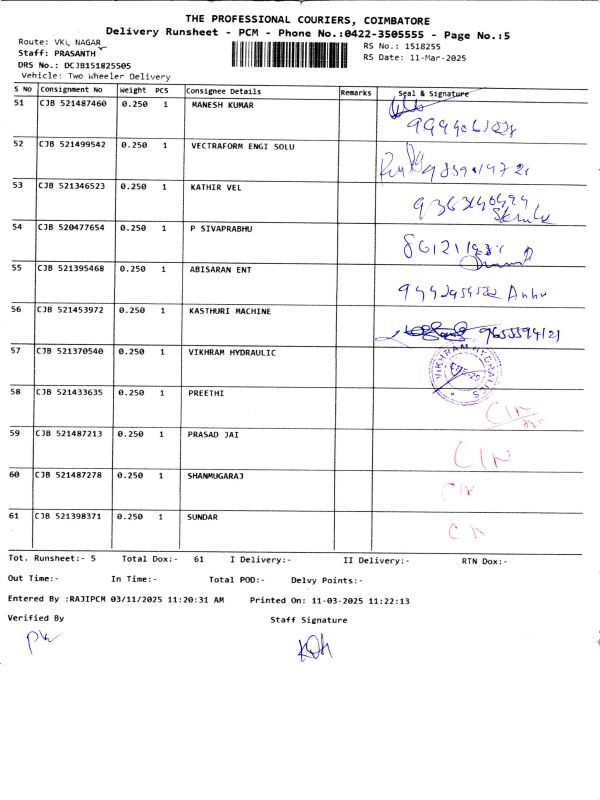 THE PROFESSIONAL COURIERS, COIMBATORE
Delivery Runsheet - PCM - Phone No.:0422-3505555 - Page No.:5
Route: VKL NAGAR
RS No.: 1518255
Staff: PRASANTH
RS Date: 11-Mar-2025
DRS No.: DCJB151825505
Vehicle: Two Wheeler Delivery
S No Consignment No Weight PCS Consignee Details Remarks Seal & Signature
51 CJB 521487460 0.250 1 MANESH KUMAR
52 CJB 521499542 0.250 1 VECTRAFORM ENGI SOLU
53 CJB 521346523 0.250 1 KATHIR VEL
54 CJB 520477654 0.250 1 P SIVAPRABHU
55 CJB 521395468 0.250 1 ABISARAN ENT
56 CJB 521453972 0.250 1 KASTHURI MACHINE 9655594121
57 CJB 521370540 0.250 1 VIKHRAM HYDRAULIC VIKHRAM HYDRAULICS
58 CJB 521433635 0.250 1 PREETHI CIN
59 CJB 521487213 0.250 1 PRASAD JAI CIN
60 CJB 521487278 0.250 1 SHANMUGARAJ CIN
61 CJB 521398371 0.250 1 SUNDAR
Tot. Runsheet:- 5 Total Dox:- 61 I Delivery:- II Delivery:- RTN Dox:-
Out Time:- In Time:- Total POD:- Delvy Points:-
Entered By :RAJIPCM 03/11/2025 11:20:31 AM Printed On: 11-03-2025 11:22:13
Verified By Staff Signature